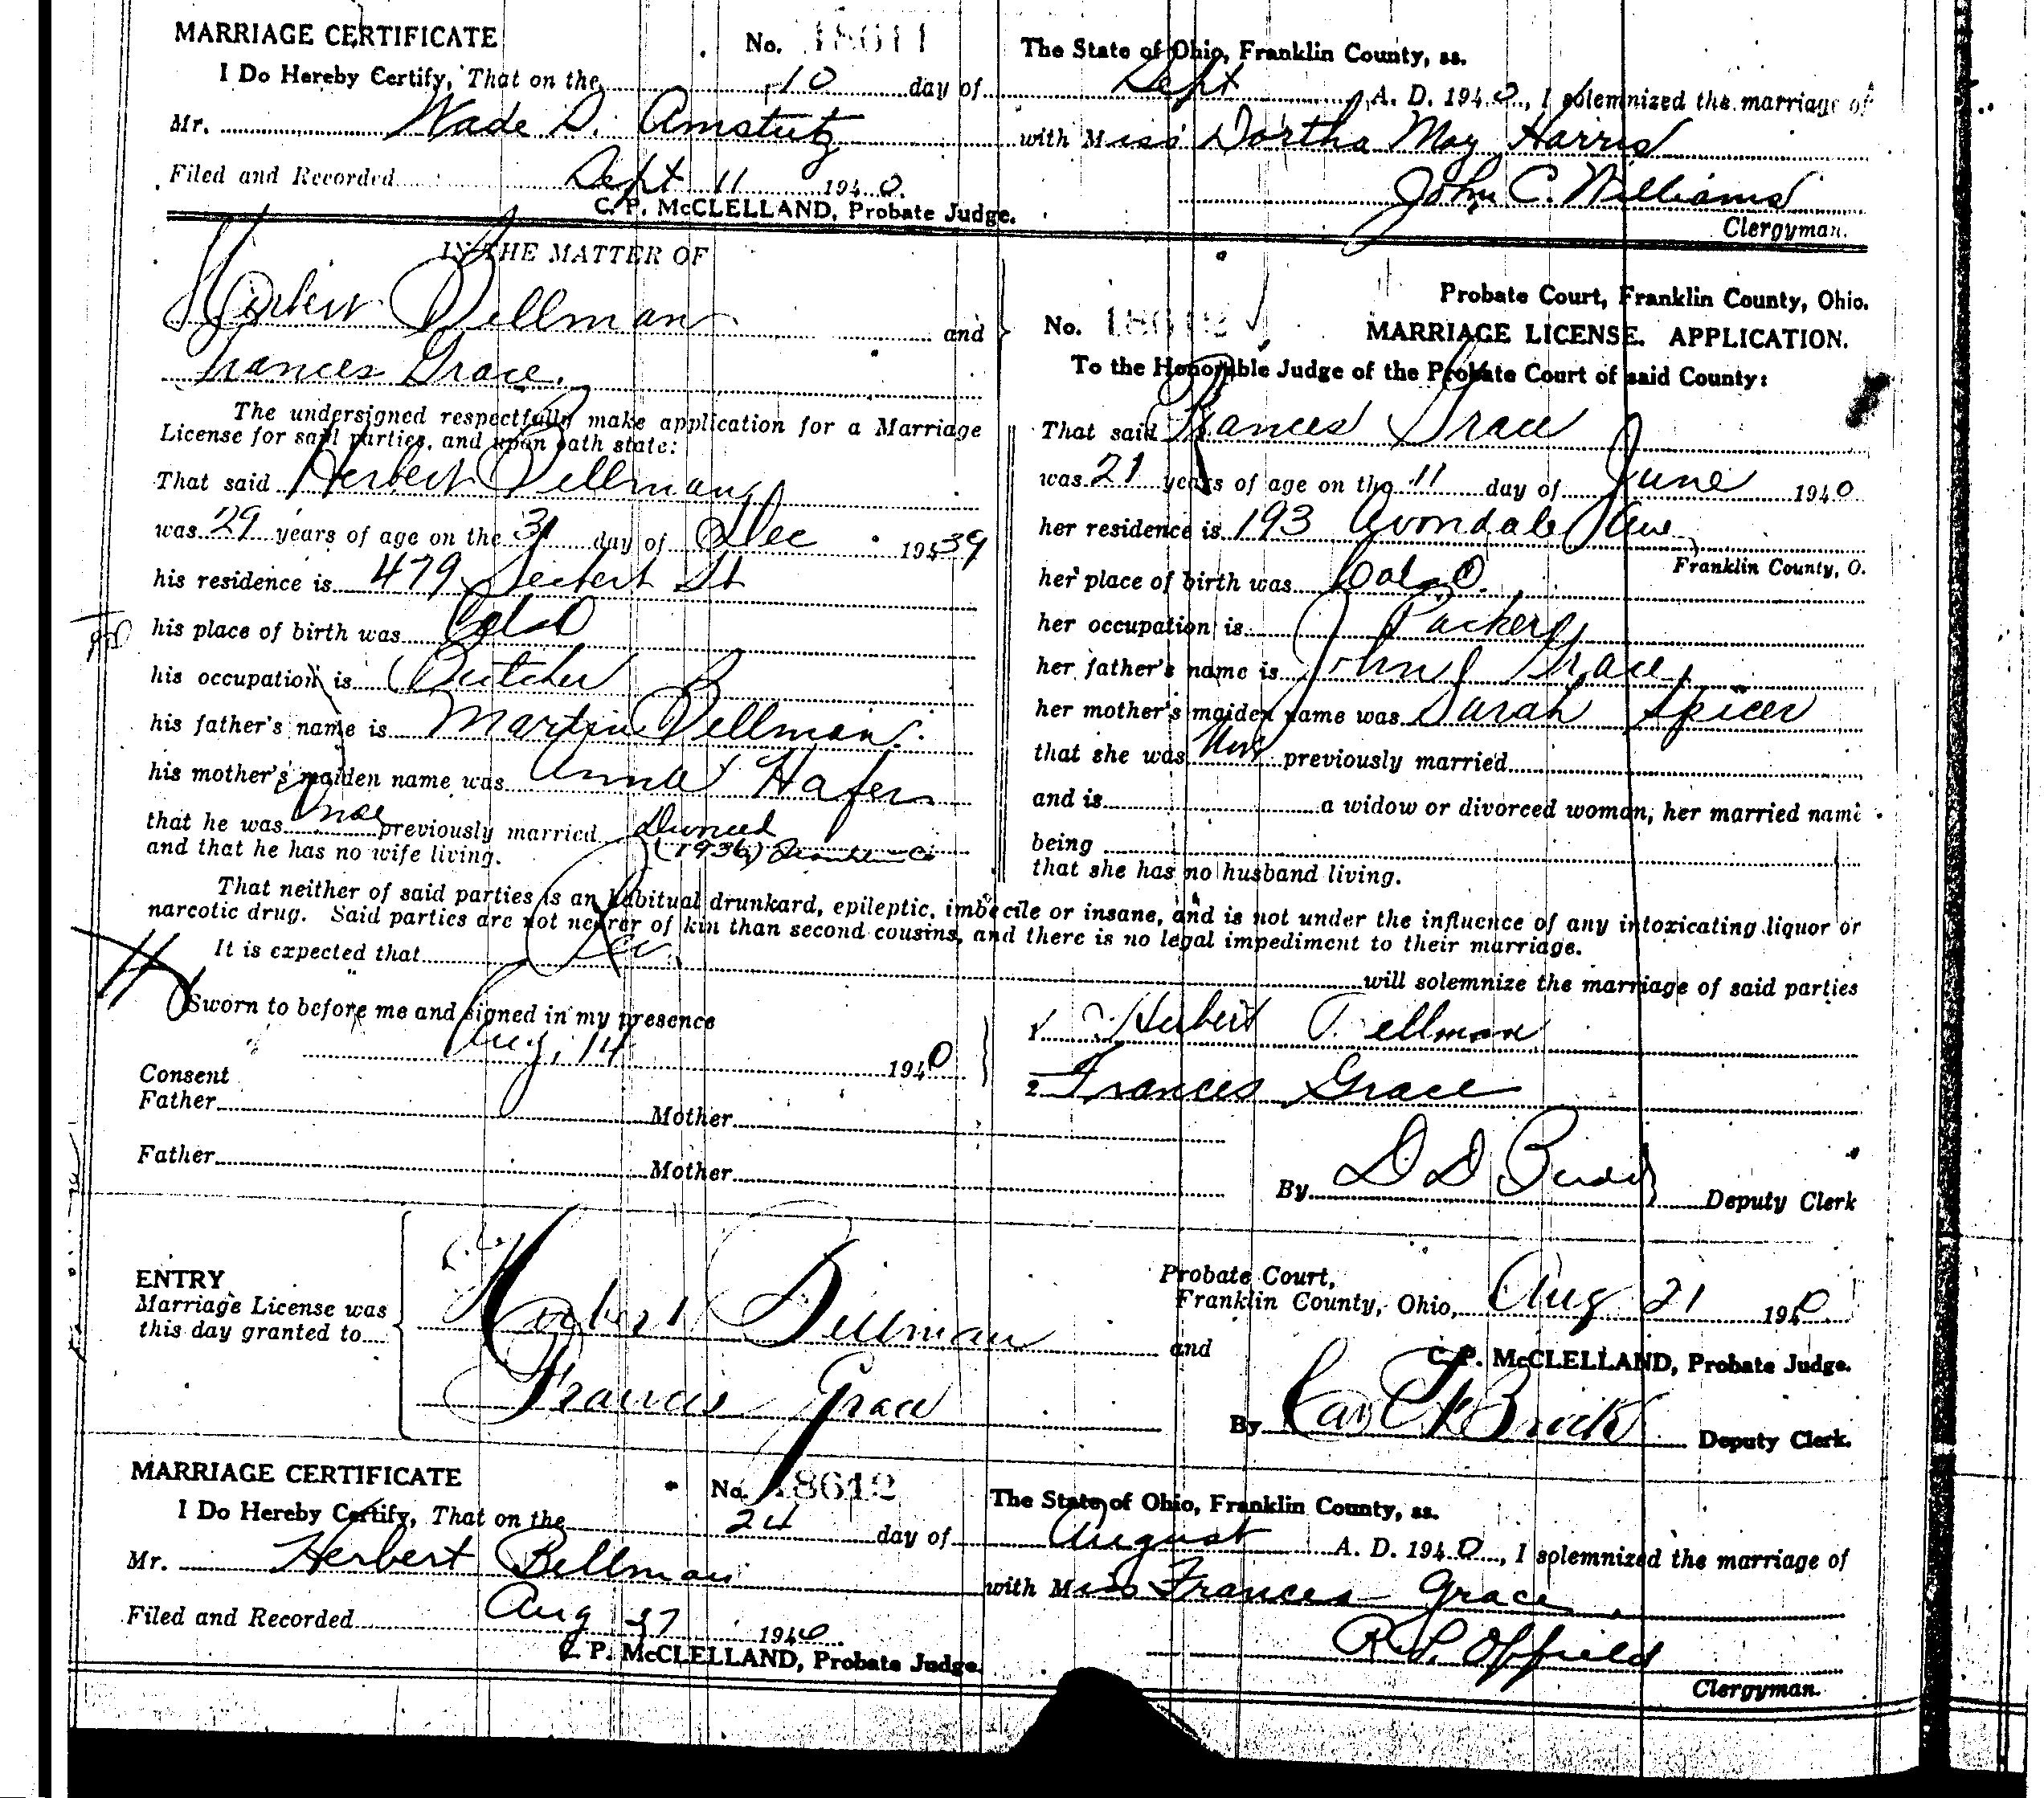 MARRIAGE CERTIFICATE No. 18611 The State of Ohio, Franklin County, ss.
I Do Hereby Certify, That on the 10 day of Sept A. D. 1940, I solemnized the marriage of
Mr. Wade D. Amstutz with Miss Dortha May Harris
Filed and Recorded Sept 11 1940. John C. Williams
C. P. McCLELLAND, Probate Judge. Clergyman.
IN THE MATTER OF
Herbert Bellman and
Frances Grace.
The undersigned respectfully make application for a Marriage
License for said parties, and upon oath state:
That said Herbert Bellman
was 29 years of age on the 31 day of Dec 1939
his residence is 479 Seibert St
his place of birth was Cols O
his occupation is Butcher
his father's name is Martin Bellman
his mother's maiden name was Anna Hafer
that he was once previously married Divorced
and that he has no wife living. (1936) Franklin Co
Probate Court, Franklin County, Ohio.
No. 18612 MARRIAGE LICENSE. APPLICATION.
To the Honorable Judge of the Probate Court of said County:
That said Frances Grace
was 21 years of age on the 11 day of June 1940
her residence is 193 Avondale Ave
Franklin County, O.
her place of birth was Cols O.
her occupation is Packer
her father's name is John Grace
her mother's maiden name was Sarah Spicer
that she was Nev previously married
and is a widow or divorced woman; her married name
being
that she has no husband living.
That neither of said parties is an habitual drunkard, epileptic, imbecile or insane, and is not under the influence of any intoxicating liquor or
narcotic drug. Said parties are not nearer of kin than second cousins, and there is no legal impediment to their marriage.
It is expected that Rev. will solemnize the marriage of said parties
Sworn to before me and signed in my presence
Aug. 14 1940
1 Herbert Bellman
2 Frances Grace
Consent
Father Mother
Father Mother
By D D Budd Deputy Clerk
ENTRY
Marriage License was
this day granted to
Herbert Bellman and
Francis Grace
Probate Court,
Franklin County, Ohio, Aug 21 1940
C. P. McCLELLAND, Probate Judge.
By Deputy Clerk.
MARRIAGE CERTIFICATE No. 18612 The State of Ohio, Franklin County, ss.
I Do Hereby Certify, That on the 24 day of August A. D. 1940, I solemnized the marriage of
Mr. Herbert Bellman with Miss Frances Grace
Filed and Recorded Aug 27 1940 R. L. Offield
C. P. McCLELLAND, Probate Judge. Clergyman.